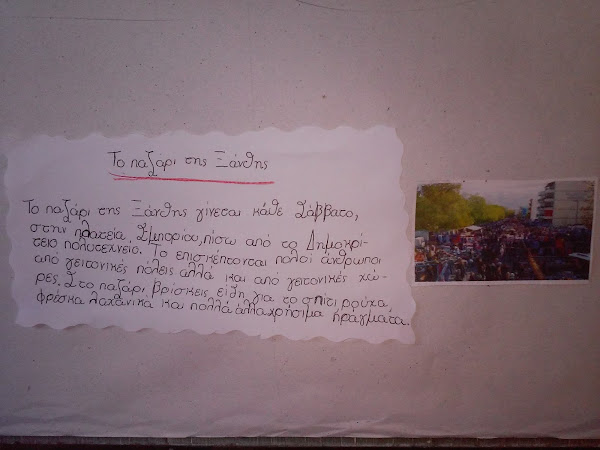 Το παζάρι της Ξάνθης
Το παζάρι της Ξάνθης γίνεται κάθε Σάββατο,
στην πλατεία Εμπορίου, πίσω από το Δημοκρί-
τειο πολυτεχνείο. Το επισκέπτονται πολοί άνθρωποι
από γειτονικές πόλεις αλλά και από γειτονικές χώ-
ρες. Στο παζάρι βρίσκεις είδη για το σπίτι ρούχα
φρέσκα λαχανικά και πολλά άλλα χρήσιμα πράγματα.